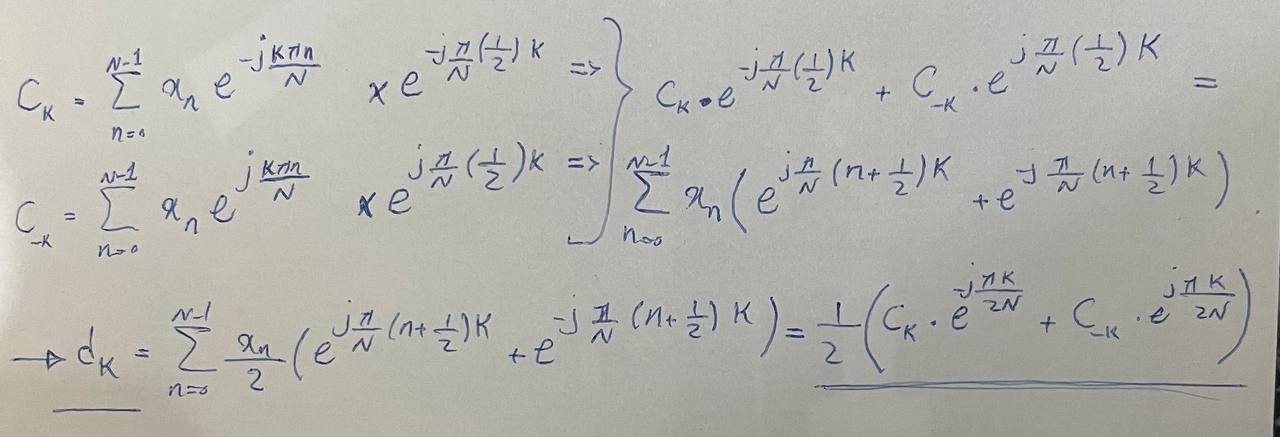 C_K = \sum_{n=0}^{N-1} x_n e^{-j\frac{kπn}{N}} × e^{-j\frac{π}{N}(\frac{1}{2})K} => } C_K \cdot e^{-j\frac{π}{N}(\frac{1}{2})K} + C_{-K} \cdot e^{j\frac{π}{N}(\frac{1}{2})K} =
C_{-K} = \sum_{n=0}^{N-1} x_n e^{j\frac{kπn}{N}} × e^{j\frac{π}{N}(\frac{1}{2})K} => \sum_{n=0}^{N-1} x_n (e^{j\frac{π}{N}(n+\frac{1}{2})K} + e^{-j\frac{π}{N}(n+\frac{1}{2})K})
→ d_K = \sum_{n=0}^{N-1} \frac{x_n}{2} (e^{j\frac{π}{N}(n+\frac{1}{2})K} + e^{-j\frac{π}{N}(n+\frac{1}{2})K}) = \frac{1}{2} (C_K \cdot e^{-j\frac{πK}{2N}} + C_{-K} \cdot e^{j\frac{πK}{2N}})